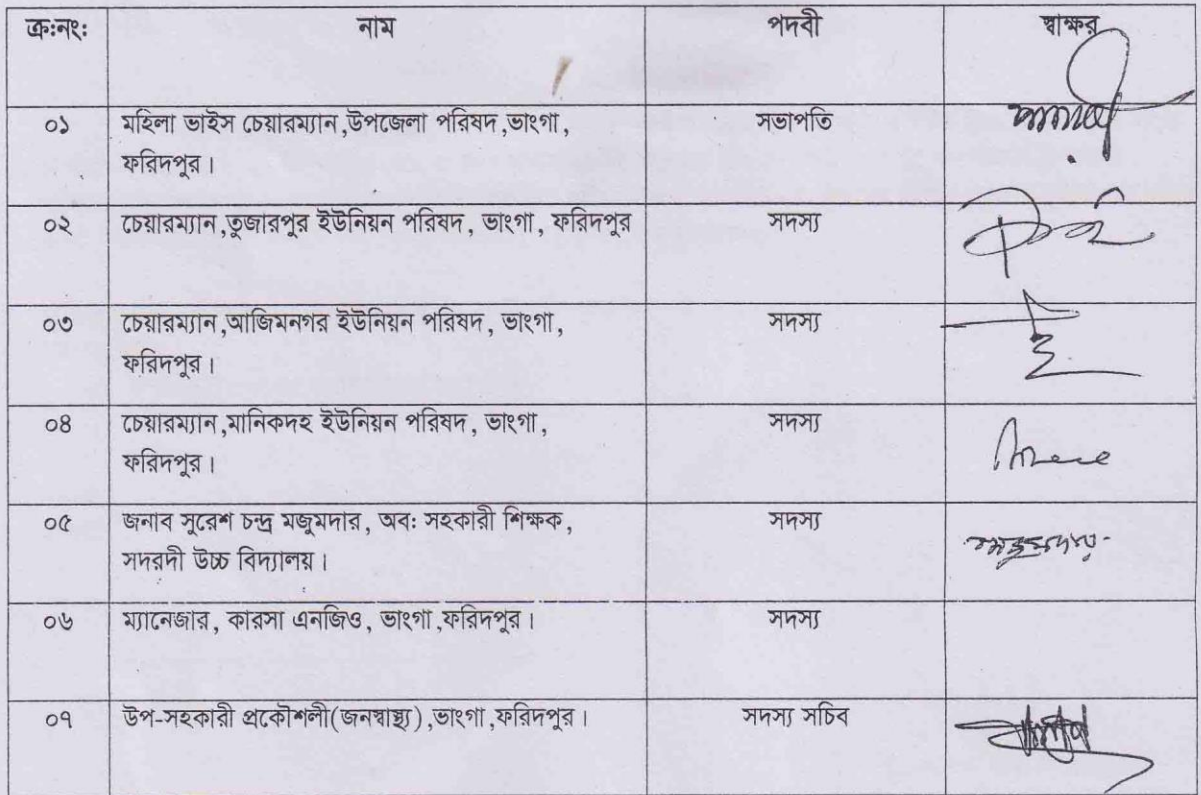 ক্র:নং: নাম পদবী স্বাক্ষর
০১ মহিলা ভাইস চেয়ারম্যান,উপজেলা পরিষদ,ভাংগা, সভাপতি
ফরিদপুর।
০২ চেয়ারম্যান,তুজারপুর ইউনিয়ন পরিষদ, ভাংগা, ফরিদপুর সদস্য
০৩ চেয়ারম্যান,আজিমনগর ইউনিয়ন পরিষদ, ভাংগা, সদস্য
ফরিদপুর।
০৪ চেয়ারম্যান,মানিকদহ ইউনিয়ন পরিষদ, ভাংগা, সদস্য
ফরিদপুর।
০৫ জনাব সুরেশ চন্দ্র মজুমদার, অব: সহকারী শিক্ষক, সদস্য
সদরদী উচ্চ বিদ্যালয়।
০৬ ম্যানেজার, কারসা এনজিও, ভাংগা,ফরিদপুর। সদস্য
০৭ উপ-সহকারী প্রকৌশলী(জনস্বাস্থ্য),ভাংগা,ফরিদপুর। সদস্য সচিব